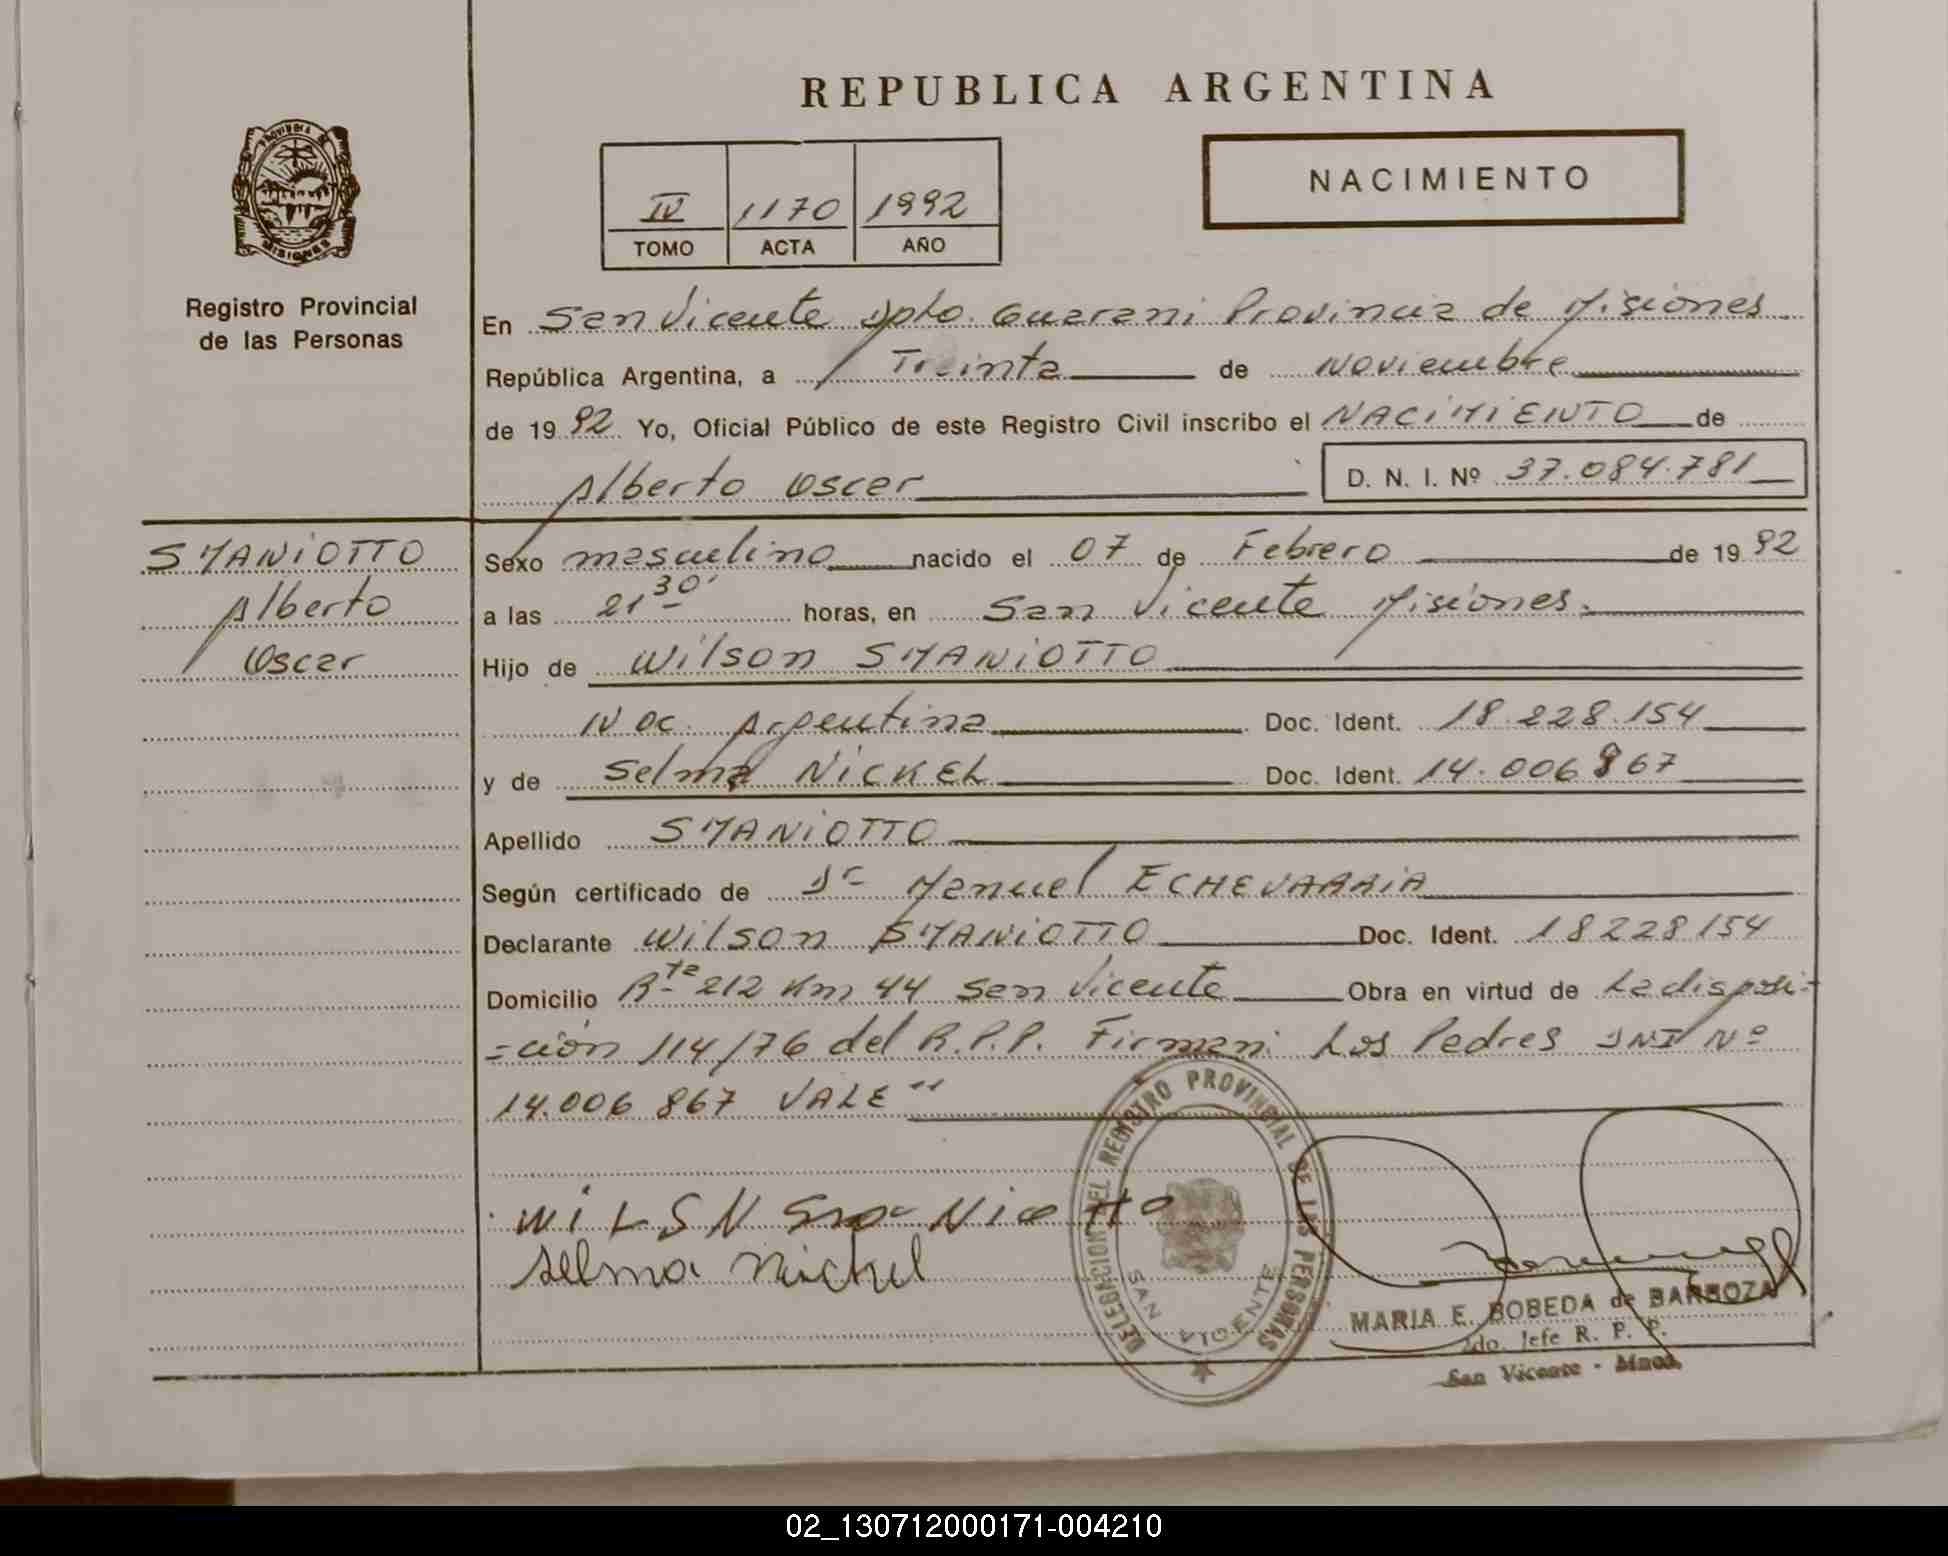 REPUBLICA ARGENTINA
PROVINCIA DE
MISIONES
Registro Provincial
de las Personas
IV 1170 1992
TOMO ACTA AÑO
NACIMIENTO
En San Vicente Dpto. Guarani Provincia de Misiones
República Argentina, a Treinta de Noviembre
de 1992 Yo, Oficial Público de este Registro Civil inscribo el NACIMIENTO de
Alberto Oscar D. N. I. Nº 37.084.781
SMANIOTTO
Alberto
Oscar
Sexo masculino nacido el 07 de Febrero de 1992
a las 21 30' horas, en San Vicente Misiones.
Hijo de Wilson SMANIOTTO
Nac. Argentina Doc. Ident. 18.228.154
y de Selma NICKEL Doc. Ident. 14.006 867
Apellido SMANIOTTO
Según certificado de Dr Manuel ECHEVARRIA
Declarante Wilson SMANIOTTO Doc. Ident. 18228154
Domicilio Rta 212 Km 44 San Vicente Obra en virtud de La disposi-
-ción 114/76 del R.P.P. Firman: Los Padres DNI Nº
14.006 867 VALE"
WiLSN SmaNiotto
Selma Nickel
DELEGACION DEL REGISTRO PROVINCIAL DE LAS PERSONAS
SAN VICENTE
MARIA E. BOBEDA de BARBOZA
2do. Jefe R. P. P.
San Vicente - Mnes.
02_130712000171-004210